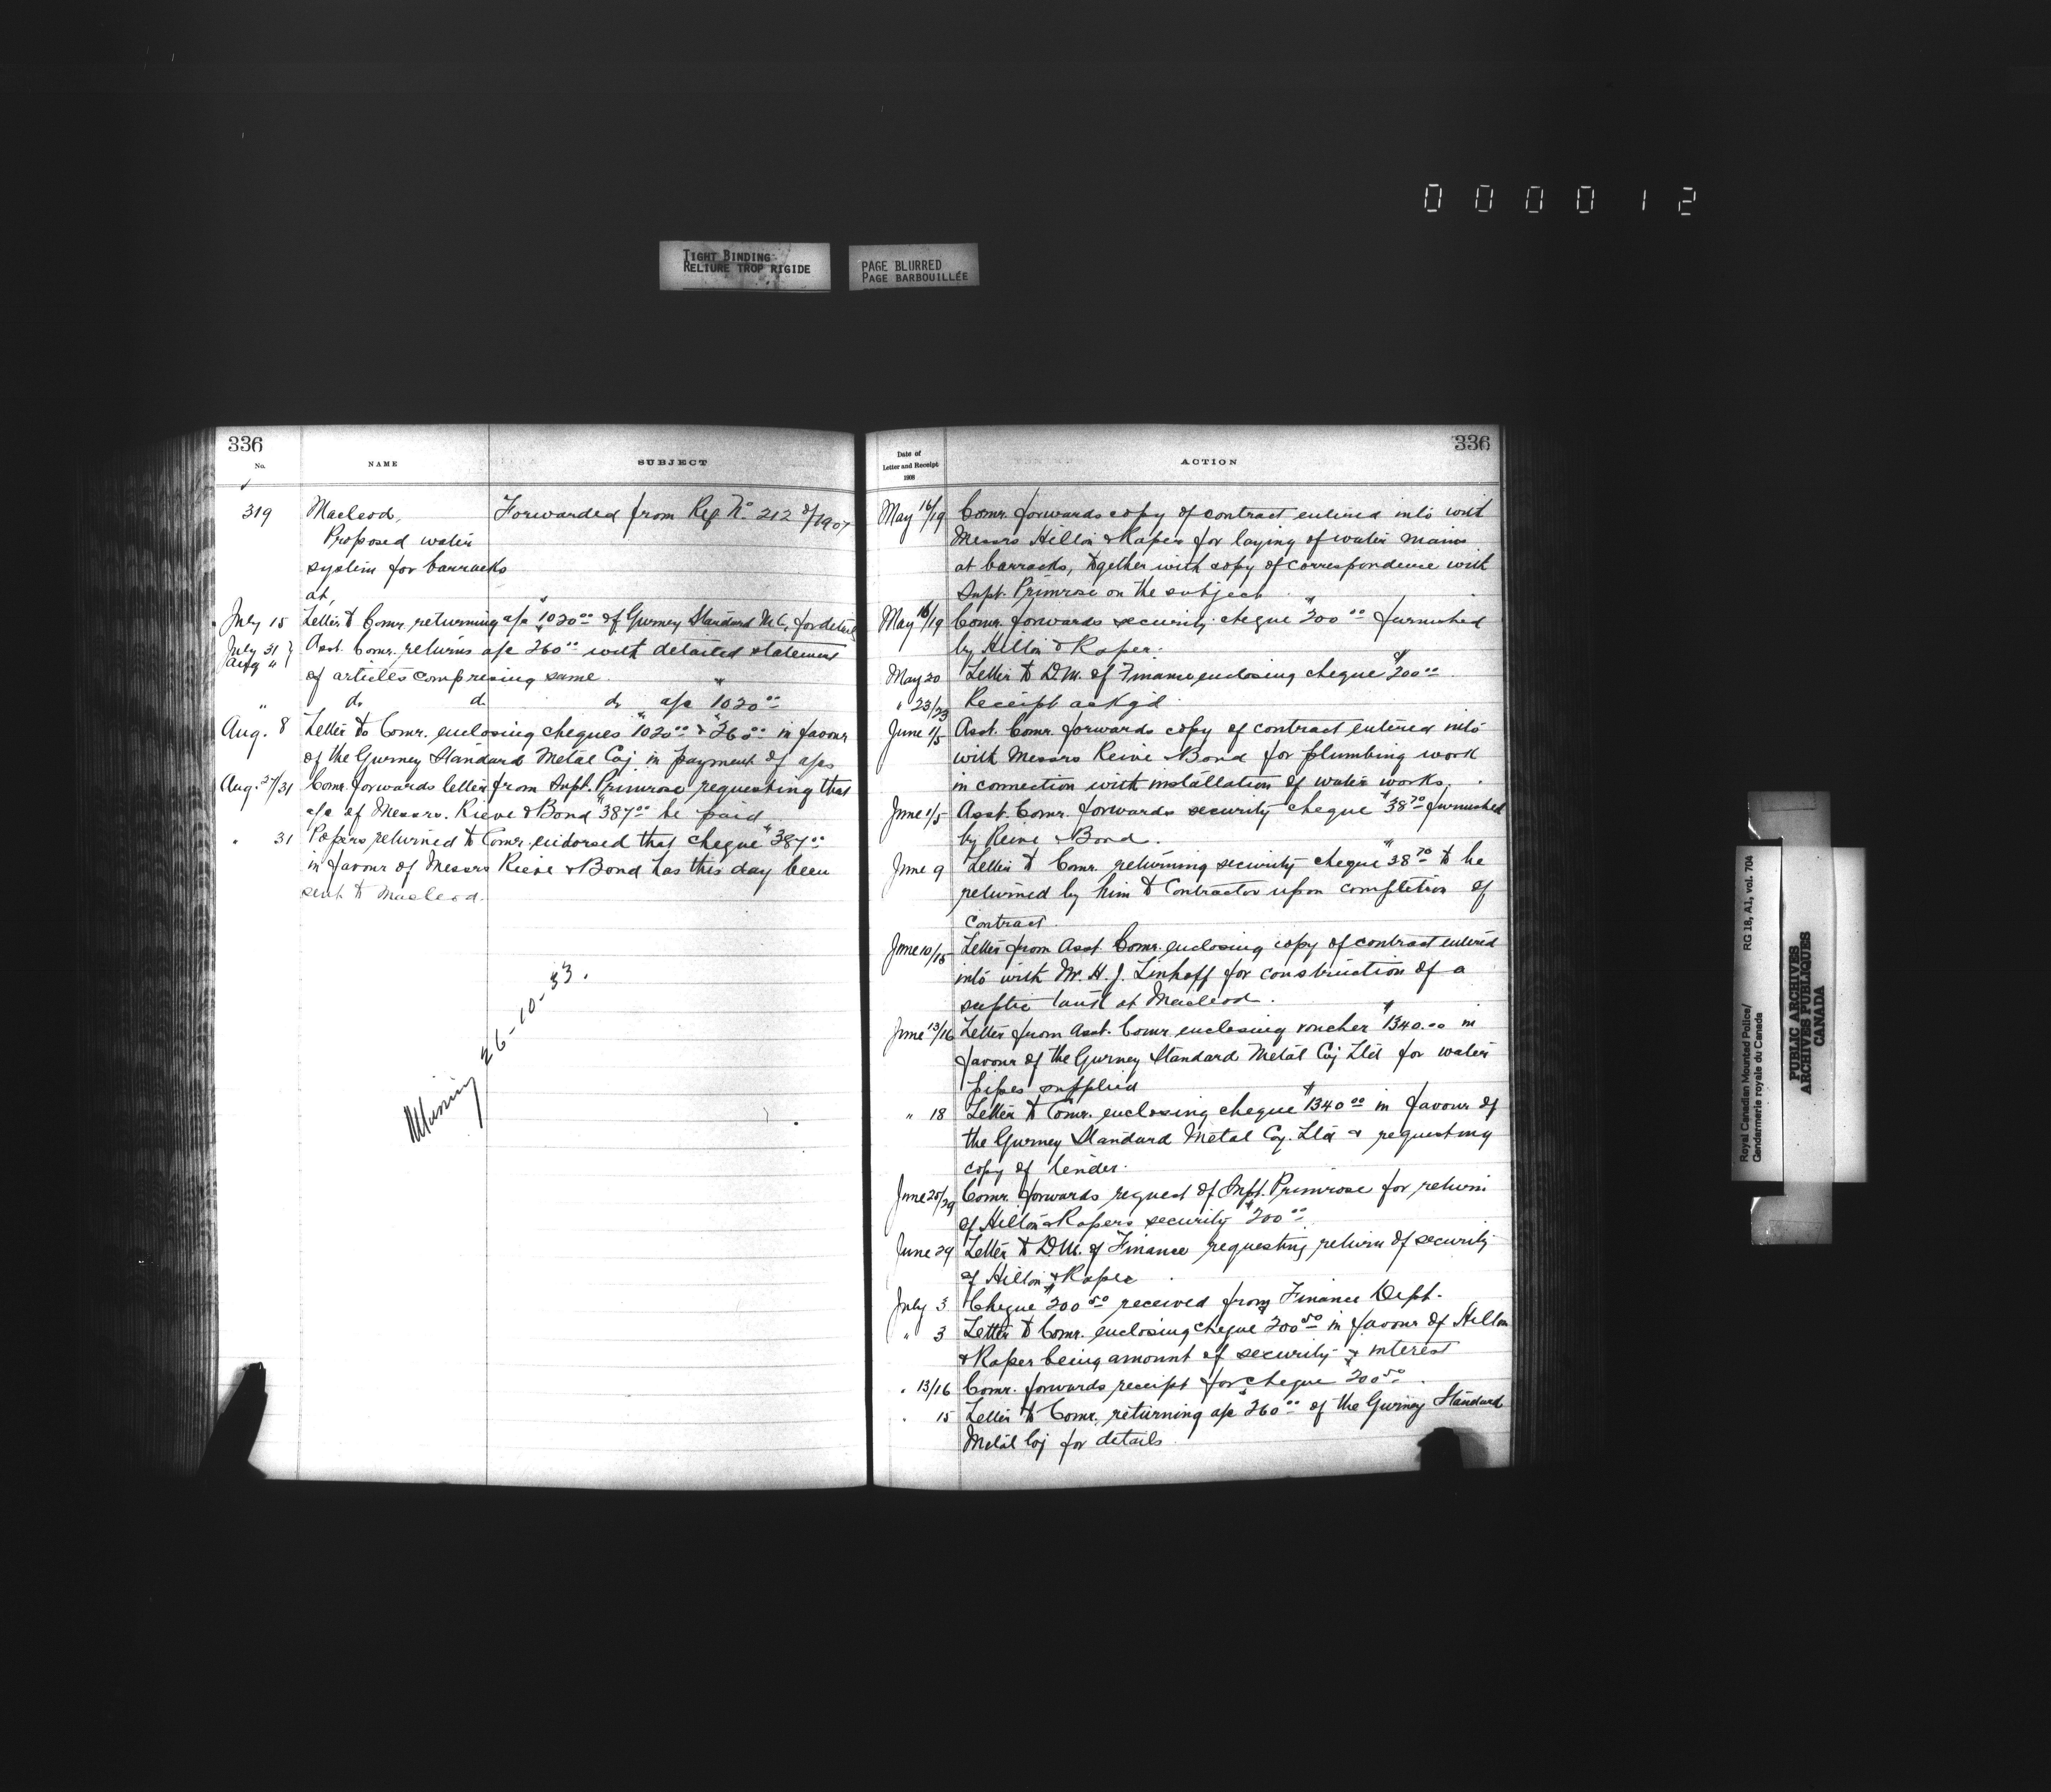 000012
TIGHT BINDING
RELIURE TROP RIGIDE
PAGE BLURRED
PAGE BARBOUILLÉE
336
No.
NAME
SUBJECT
319
Macleod,
Forwarded from Reg. No. 212 of/1907
Proposed water
system for barracks
at,
July 15 Letter to Comr. returning a/c $1020.00 of Gurney Standard M.C. for details
July 31 Asst. Comr. returns a/c 260.00 with detailed statement
Aug "
of articles comprising same.
" do do do a/c $1020.00
Aug. 8 Letter to Comr. enclosing cheques $1020.00 & $260.00 in favour
of the Gurney Standard Metal Coy in payment of a/cs
Aug. 27/31 Comr. forwards letter from Supt. Primrose requesting that
a/c of Messrs. Rieve & Bond $387.00 be paid.
" 31 Papers returned to Comr. endorsed that cheque $387.00
in favour of Messrs Rieve & Bond has this day been
sent to Macleod.
26-10-33.
336
Date of
Letter and Receipt
1908
ACTION
May 16/19 Comr. forwards copy of contract entered into with
Messrs Hilton & Raper for laying of water mains
at barracks, together with copy of correspondence with
Supt. Primrose on the subject.
May 16/19 Comr. forwards security cheque $200.00 furnished
by Hilton & Raper.
May 20 Letter to D.M. of Finance enclosing cheque $200.00
" 23/23 Receipt ackg'd
June 1/5 Asst. Comr. forwards copy of contract entered into
with Messrs Reive & Bond for plumbing work
in connection with installation of water works.
June 1/5 Asst. Comr. forwards security cheque $38.70 furnished
by Reive & Bond.
June 9 Letter to Comr. returning security cheque $38.70 to be
returned by him to Contractor upon completion of
contract.
June 10/15 Letter from Asst. Comr. enclosing copy of contract entered
into with Mr. H. J. Linhoff for construction of a
septic tank at Macleod.
June 13/16 Letter from Asst. Comr. enclosing voucher $1340.00 in
favour of the Gurney Standard Metal Coy Ltd for water
pipes supplied
" 18 Letter to Comr. enclosing cheque $1340.00 in favour of
the Gurney Standard Metal Coy. Ltd & requesting
copy of tender.
June 25/29 Comr. forwards request of Supt. Primrose for return
of Hilton & Rapers security $200.00
June 29 Letter to D.M. of Finance requesting return of security
of Hilton & Raper
July 3 Cheque $200.50 received from Finance Dept.
" 3 Letter to Comr. enclosing cheque $200.50 in favour of Hilton
& Raper being amount of security & interest
" 13/16 Comr. forwards receipt for cheque $200.50
" 15 Letter to Comr. returning a/c $260.00 of the Gurney Standard
Metal Coy for details
Royal Canadian Mounted Police/
Gendarmerie royale du Canada
RG 18, A1, vol. 704
PUBLIC ARCHIVES
ARCHIVES PUBLIQUES
CANADA